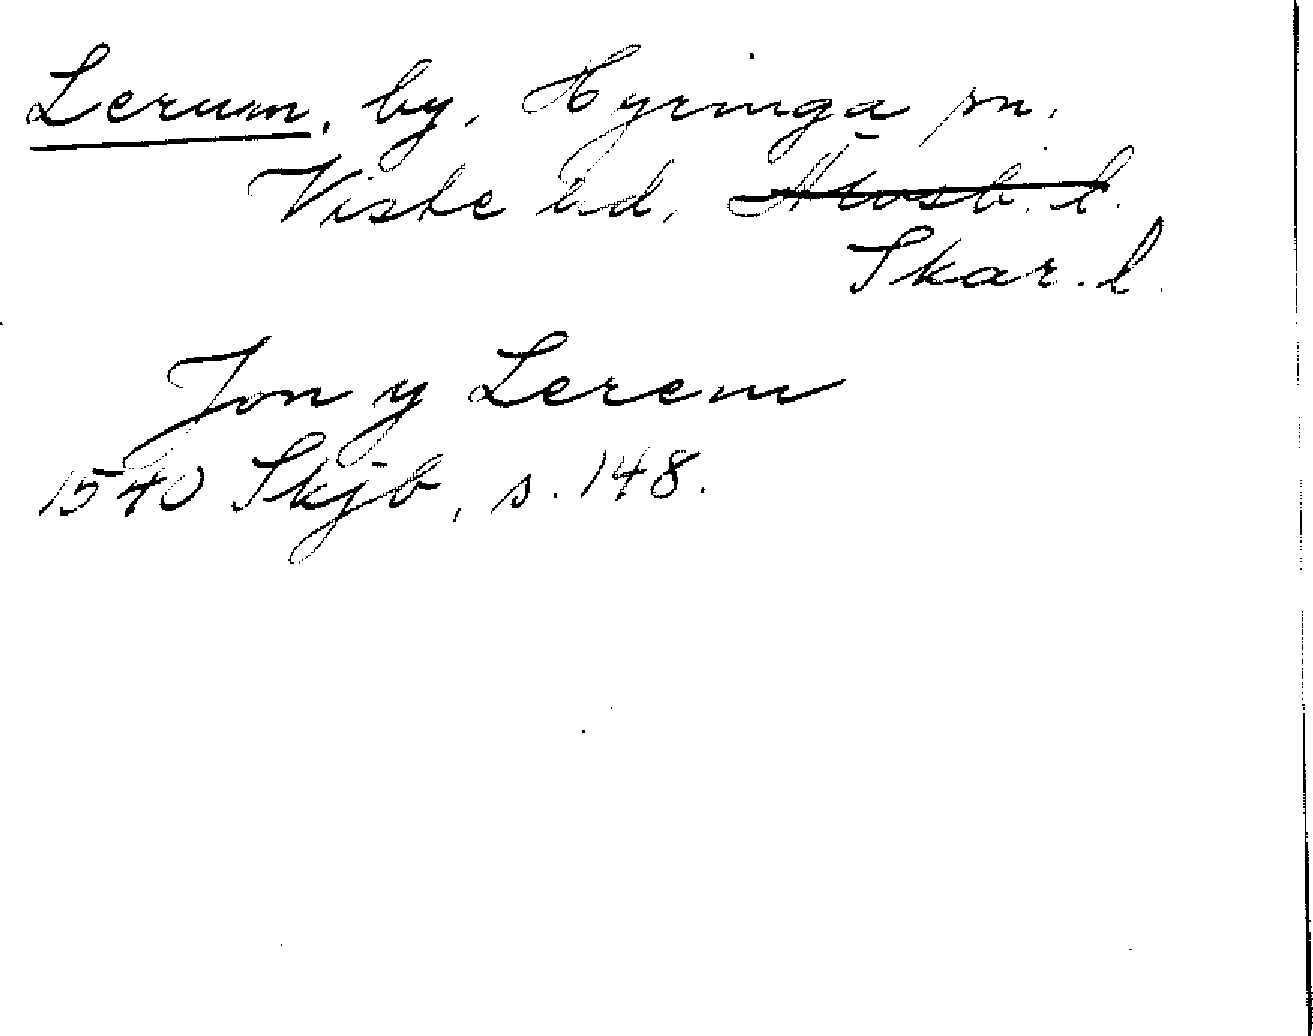 Lerum, by, Hyringa sn.
Viste hd, Älvsb. l.
Skar. l.
Jon y Lerem
1540 Skjb, s. 148.